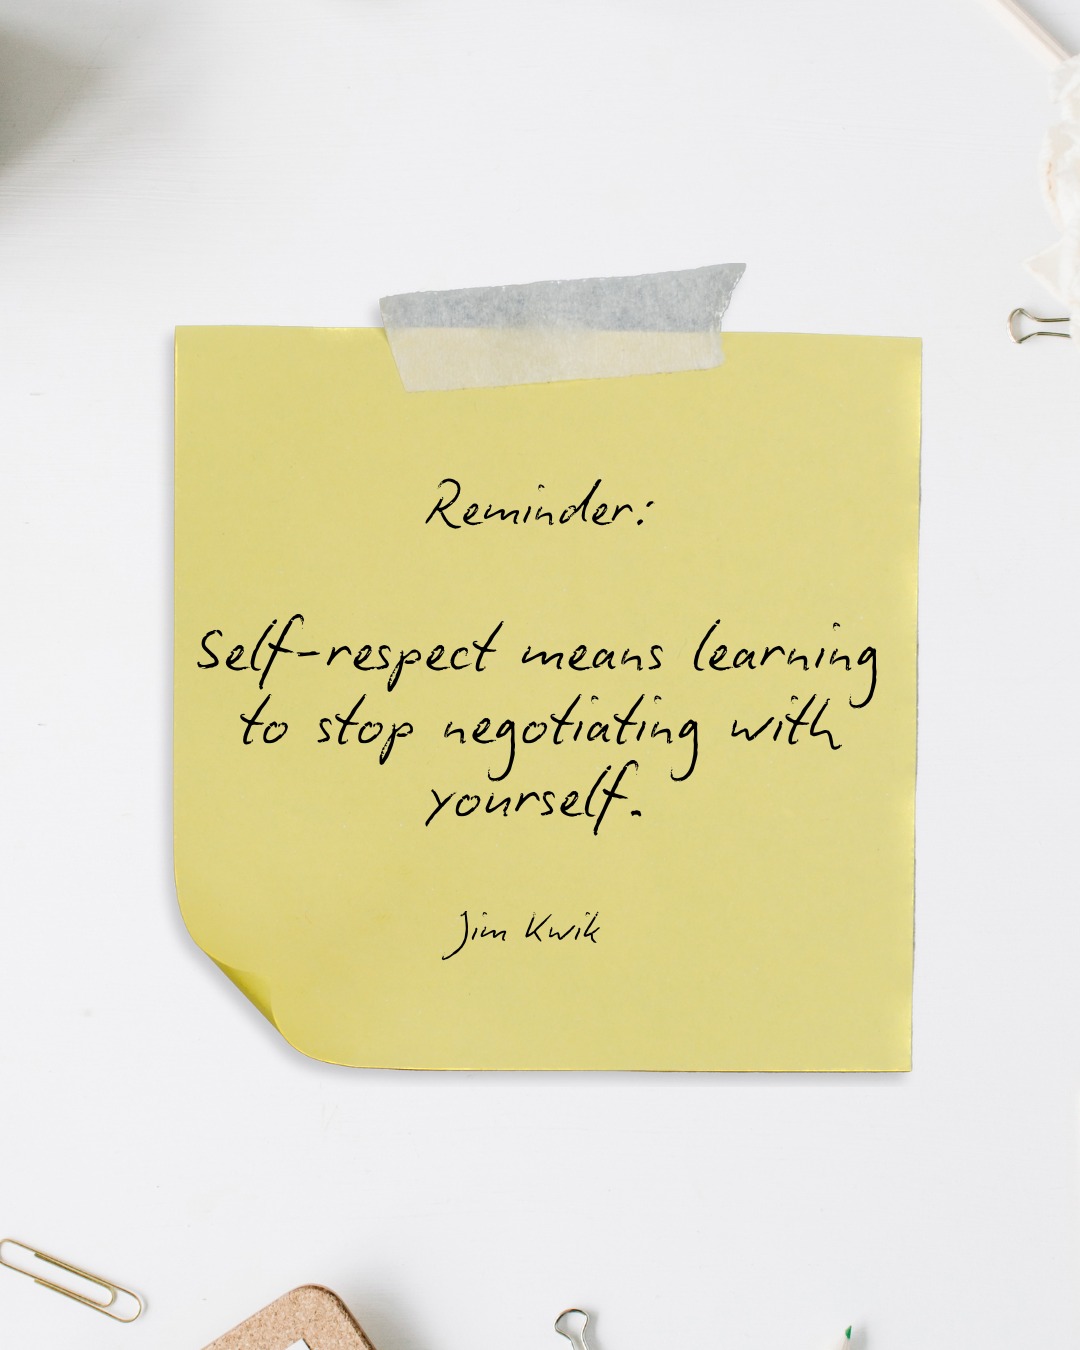 Reminder:
Self-respect means learning
to stop negotiating with
yourself.
Jim Kwik